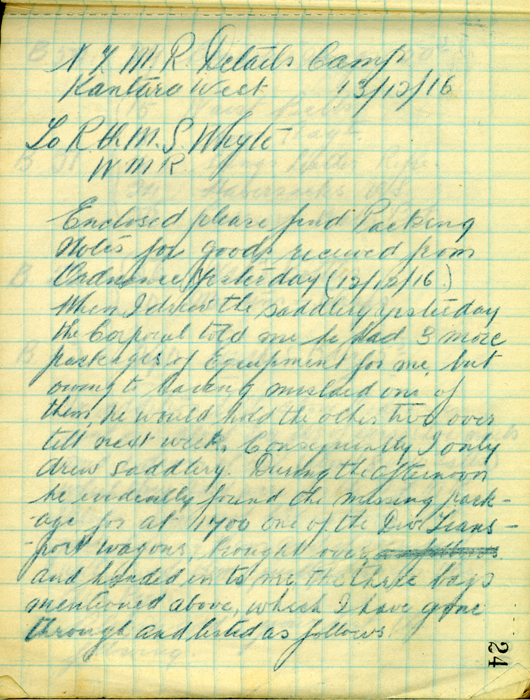 N Z M. R. Details Camp
Kantara West 13/12/16
To R. Q. M. S. Whyte
W M R.
Enclosed please find Packing
Notes for goods recieved from
Ordnance, Yesterday (12/12/16.)
When I drew the saddlery yesterday
the Corporal told me he had 3 more
packages of Equipment for me, but
owing to having mislaid one of
them, he would hold the other two over
till next week. Consequently I only
drew saddlery. During the afternoon
he evidently found the missing pack-
-age for at 1700 one of the Div. Trans-
-port wagons, brought over
and handed in to me the three bags
mentioned above, which I have gone
through and listed as follows
24